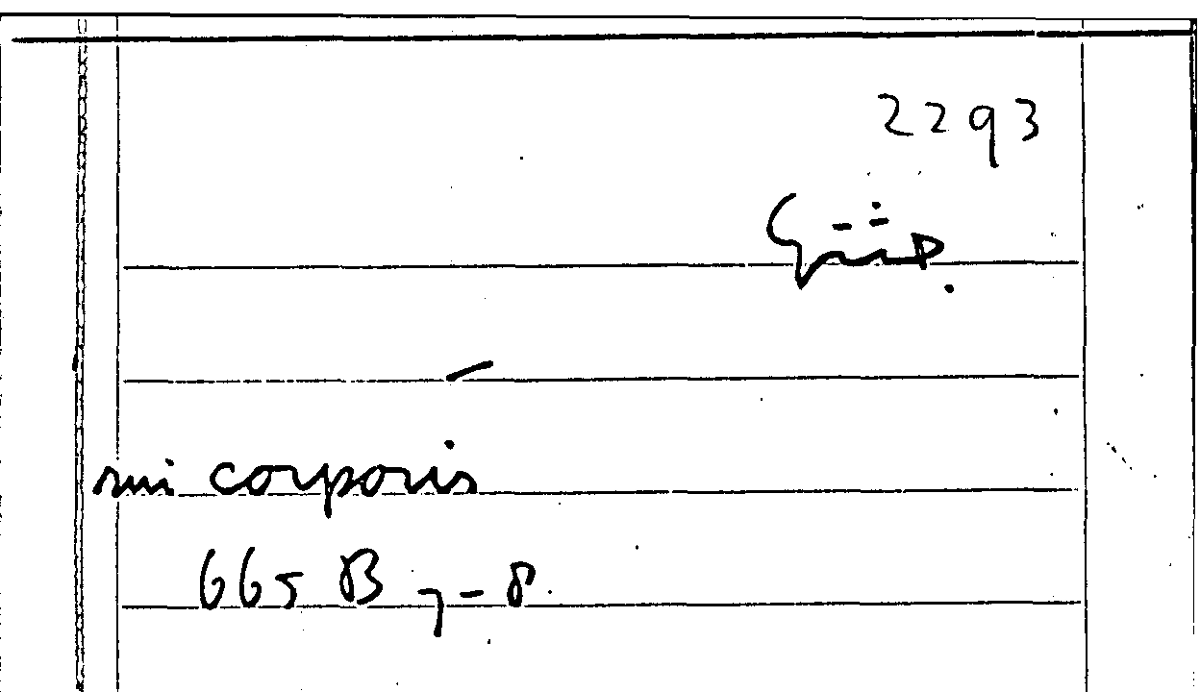 2293
sui corporis
665 B 7-8.